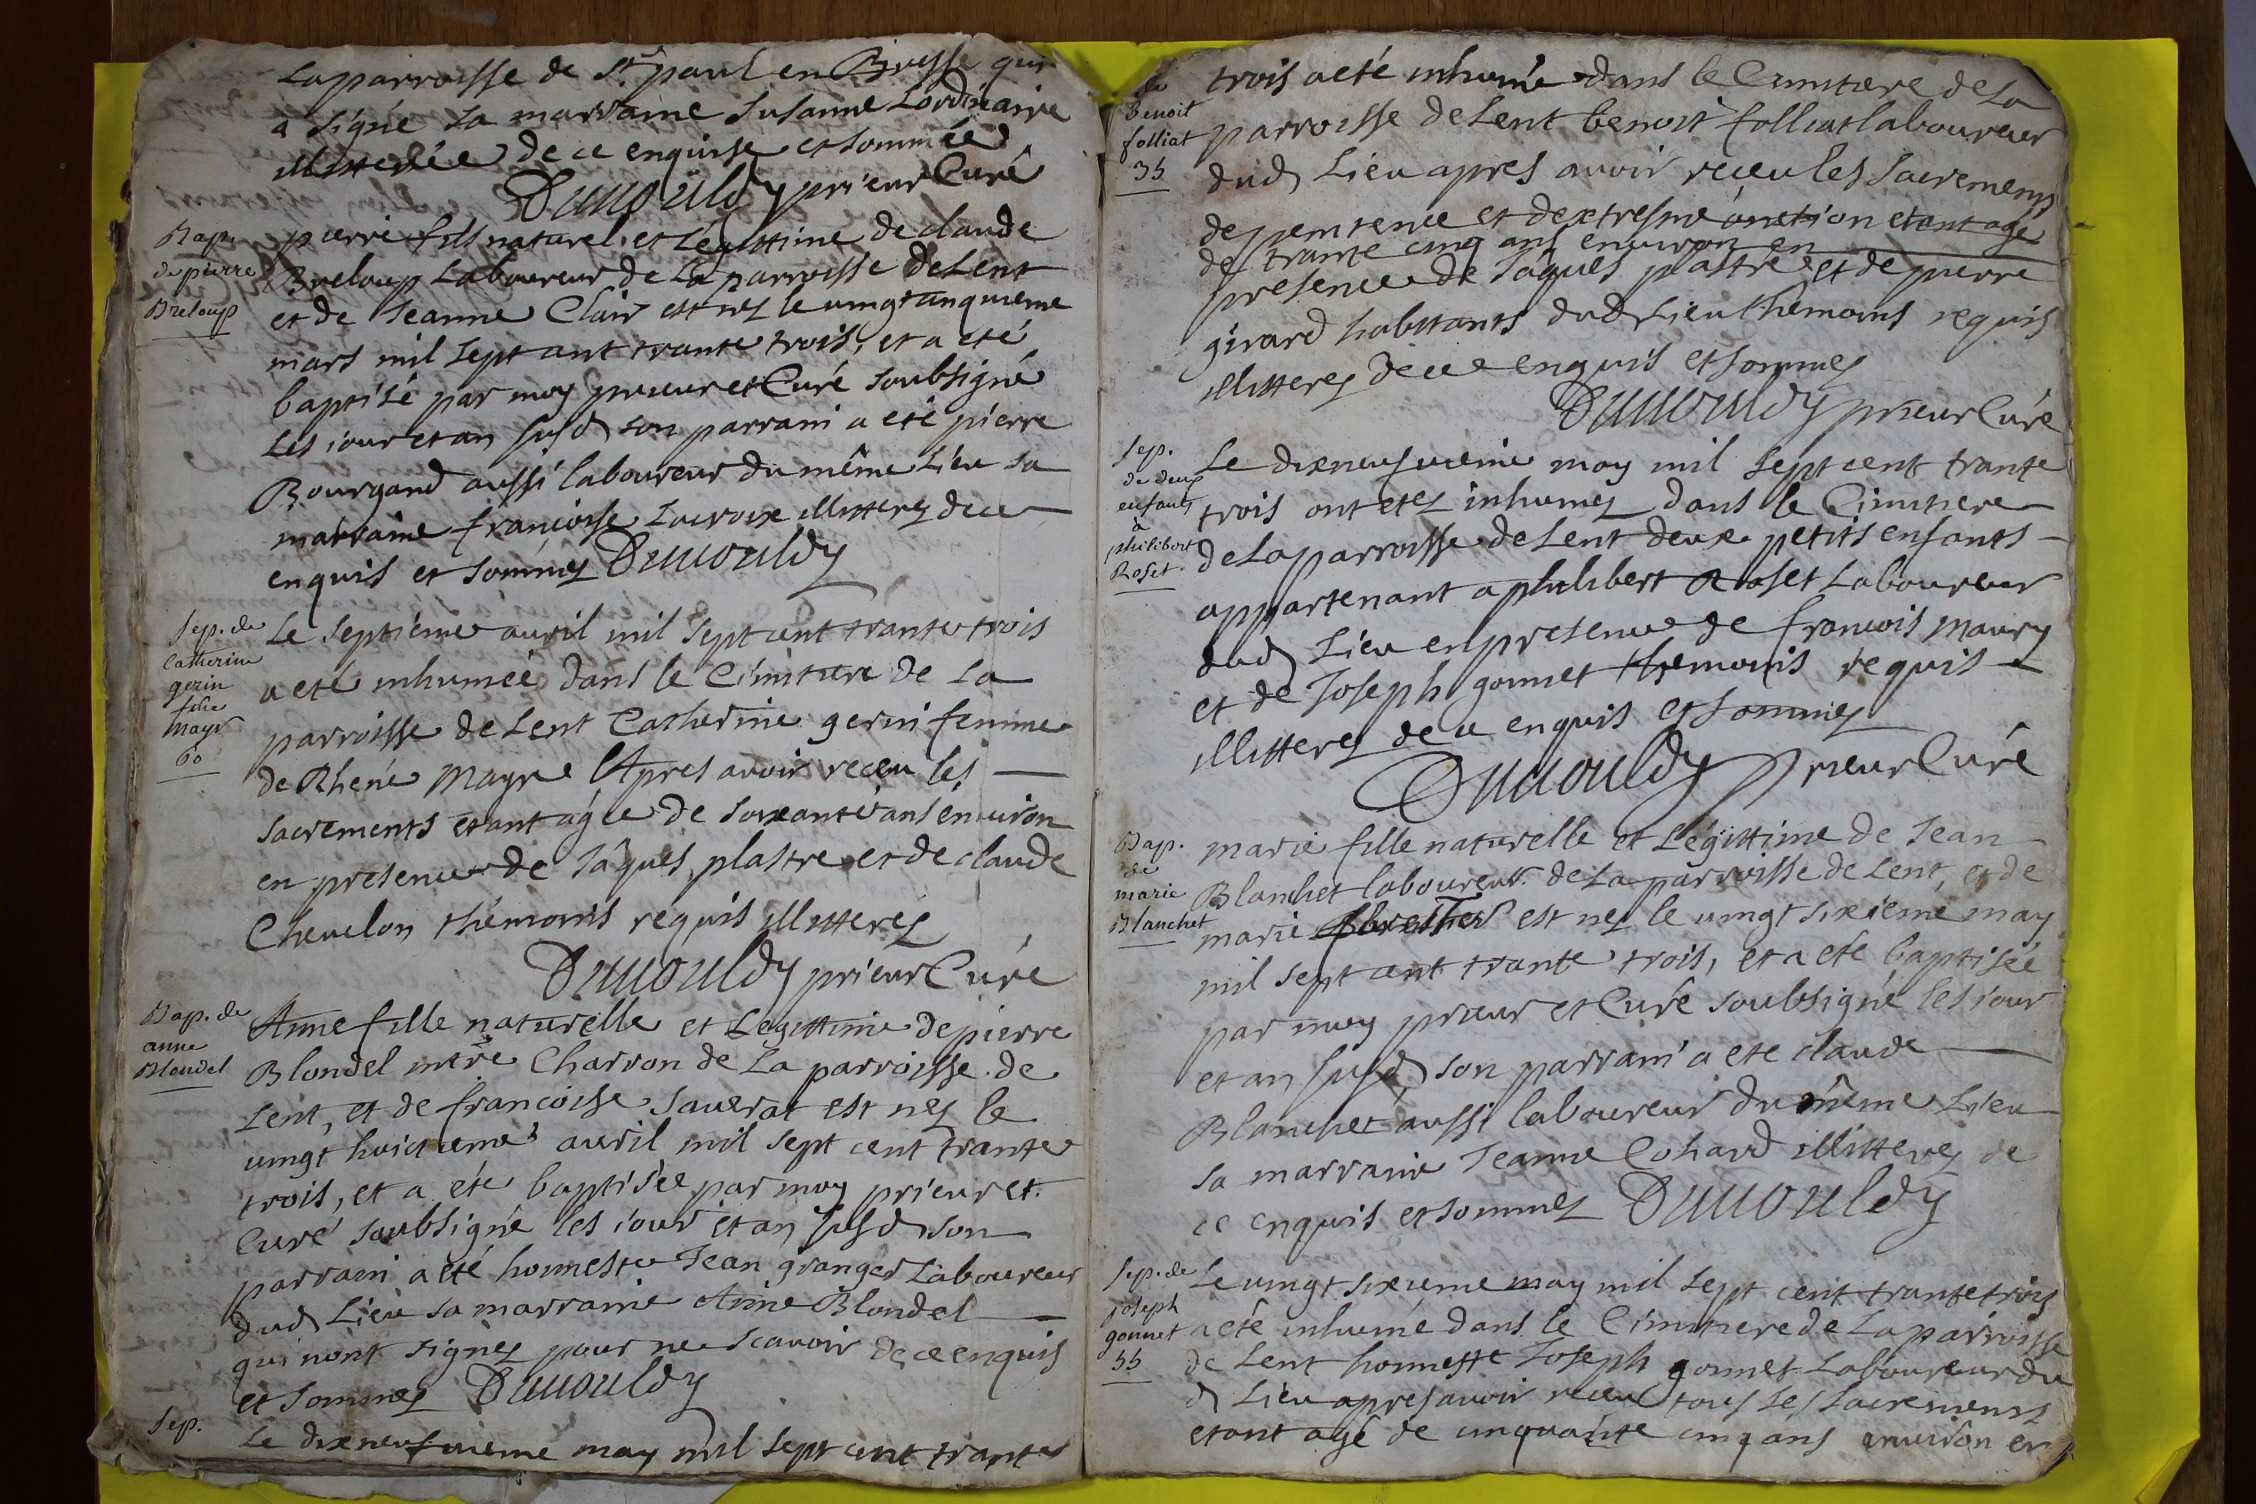 Laparroisse de St paul en Bresse qui
a signé sa marraine Susanne Lordinaire
illitterée de ce enquise et sommée
Dunouldy prieur Curé
Bap.
de pierre
Breloup
pierre fils naturel et Légittime de claude
Breloup Laboureur de La parroisse de Lent
et de Jeanne Clair est nez le vingtcinquieme
mars mil sept cent trante trois, et a eté
baptisé par moy prieur et Curé soubsigné
Les iour et an susd son parrain a eté pierre
Bourgand aussi laboureur du même Lieu sa
marraine francoise Lacroix illitterez de ce
enquis et sommez Dunouldy
Sep. de
Catherine
gerin
fe
mayr
60
Le septieme auril mil sept cent trante trois
a eté inhumée dans le Cimitiere de La
parroisse de Lent Catherine gerin femme
de Rhené Mayre Apres avoir receu les
sacrements etant agée de soixante ans enuiron
en presence de Jâques plastre et de claude
Cheuelon thémoins requis illitterez
Dunouldy prieur Curé
Bap. de
anne
Blondel
Anne fille naturelle et Legittime de pierre
Blondel mtre Charron de La parroisse de
Lent, et de francoise Sauerat est nez le
vingt huictieme auril mil sept cent trante
trois, et a été baptisée par moy prieur et
Curé soubsigné les iour et an susd son
parrain a eté honneste Jean granger Laboureur
dud Lieu sa marraine Anne Blondel
qui n'ont signez pour ne scauoir de ce enquis
et sommez Dunouldy
Sep.
Le dixneufuieme may mil sept cent trante
de
benoit
folliat
35
trois a eté inhumé dans le Cimitiere de La
parroisse de Lent benoit folliat laboureur
dud Lieu apres avoir receu les sacremens
de penitence et dextresme onction etant agé
de trante cinq ans enuiron en
presence de Jâques plastre et de pierre
girard habitants dud Lieu thémoins requis
illitterez de ce enquis et sommez
Dunouldy prieur Curé
Sep.
de deux
enfants
à
philibert
Roset.
Le dixneufuieme may mil sept cent trante
trois ont etez inhumez dans le Cimitiere
de La parroisse de Lent deux petits enfants
appartenant a philibert Roset Laboureur
dud Lieu en presence de francois Maury
et de Joseph gonnet themoins requis
illitterez de ce enquis et sommez
Dunouldy prieur Curé
Bap.
de
marie
Blanchet
marie fille naturelle et Légittime de Jean
Blanchet laboureur de La parroisse de Lent, et de
marie est nez le vingt sixieme may
mil sept cent trante trois, et a eté baptisée
par moy prieur et Curé soubsigné les iour
et an susd son parrain a eté claude
Blanchet aussi laboureur du même Lieu
sa marraine Jeanne Cohard illitterez de
ce enquis et sommez Dunouldy
Sep. de
joseph
gonnet
55
Le vingt sixieme may mil sept cent trante trois
a eté inhumé dans le Cimitiere de La parroisse
de Lent honneste Joseph gonnet Laboureur du
d Lieu apres avoir receu tous Les sacremens
etant agé de cinquante cinq ans enuiron en